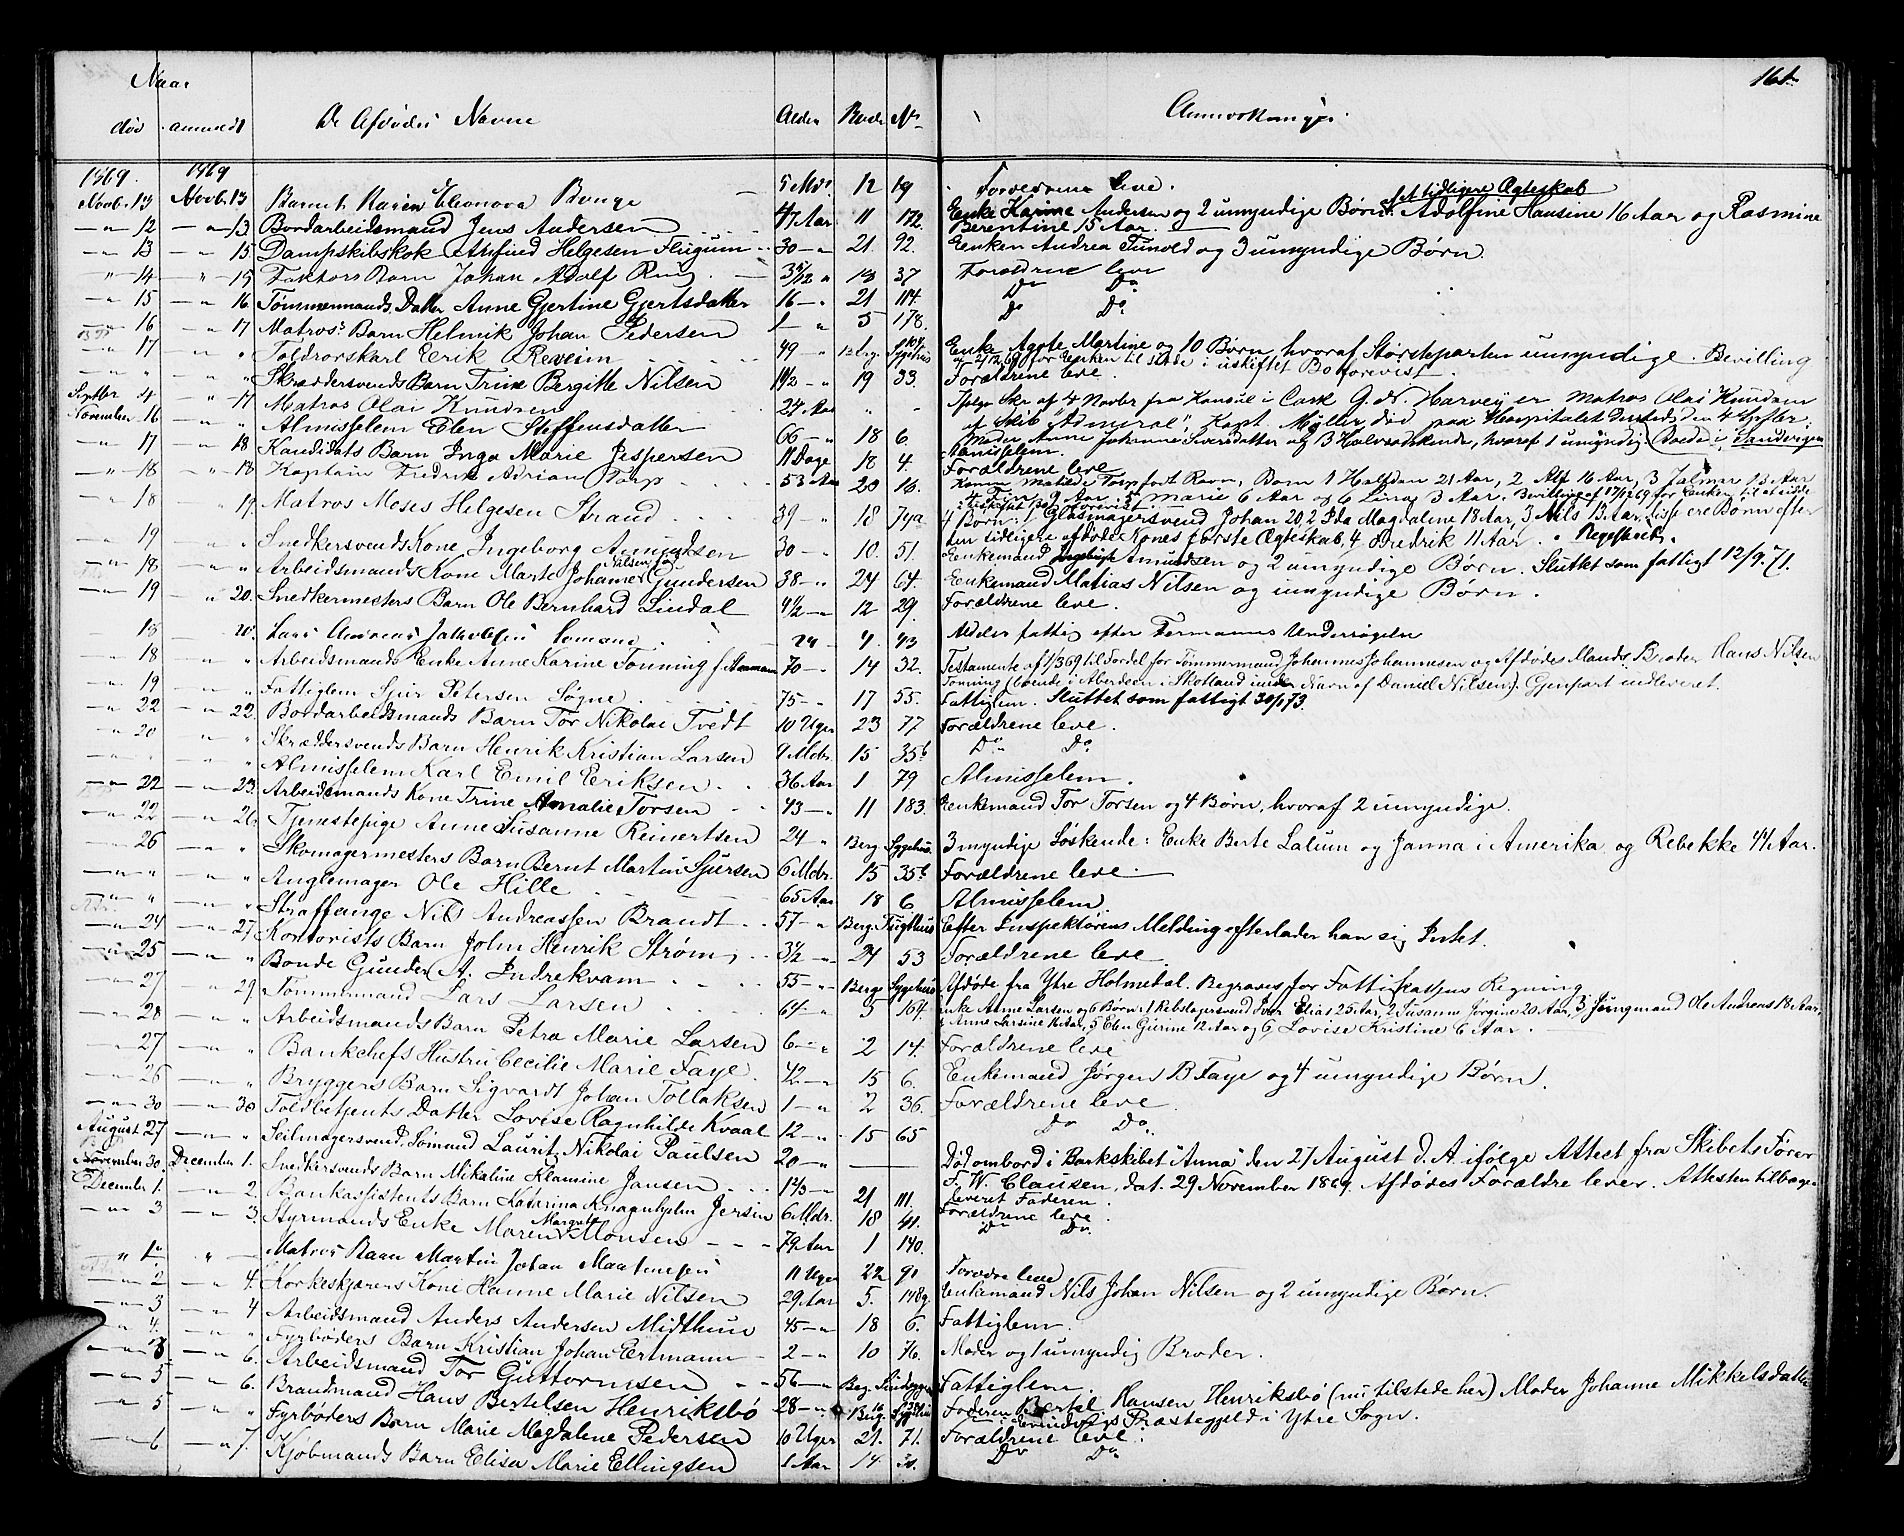 161
Naar
død anmeldt De Afdødes Navne Alder Rode No Anmerkninger
1869. 1869
Novbr 13 Novbr 13 Barnet Karen Eleonora Bunge 5 Mdr 12 19 Forældrene leve.
12 13 Bordarbeidsmand Jens Andersen 47 Aar 11 172. Enke Karine Andersen og 2 umyndige Børn af tidligere Ægteskab Adolfine Hansine 16 Aar og Rasmine Berentine 15 Aar.
13 15. Dampskibskok Helgesen Flugum 30 21. 92. Enken Andrea Tunold og 3 umyndige Børn
14 15 Faktors Barn Johan Adolf 18 37 Forældrene leve
15 16. Tømmermands Datter Anne Gjertine Gjertsdatter 16 21 114. Do Do
16 17 Matros's Barn Helmik Johan Pedersen 1 5 178. Do Do
17 " Toldrorskarl Eerik Reveim 49 Sygehus Enke Martine og 10 Børn, hvoraf Størsteparten umyndige. Bevilling
af 2/12 69 for Enken til at sidde i uskiftet Bo
" " Skræddersvends Barn Trine Bergitte Nilsen 19 33. Forældrene leve.
Septbr 4 17 Matros Olai Knudsen 24 Aar Ifølge Skr af 4 Novbr fra Konsul i Cork G. N. Harvey er Matros Olai Knudsen
af Skib "Admiral", Kapt. Müller død paa Hospitalet
November 16 " Almisselem Elen Steffensdatter 66 18 6. Moder Anne Johanne Sversdatter og 3 Halvsødskende, hvoraf 1 umyndig
Almisselem.
17 18 Kandidats Barn Inga Marie Jespersen 11 Dage 18 4. Forældrene leve
18 18 Kaptain Fredrik Adrian Torp 53 Aar 20 16. Matilde Torp født Ravn, Børn 1 Halfdan 21 Aar, 2 Alf 16 Aar, 3 Jalmar 13 Aar
4 9 Aar, 5 Marie 6 Aar og 6 3 Aar. Bevilling af for Enken til at sidde
i uskiftet Bo
18 19 Matros Moses Helgesen Strand 39 18 74a 4 Børn: 1 Glasmagersvend Johan 20, 2 Ida Magdalene 18 Aar, 3 Nils 13 Aar, disse ere Børn efter
den tidligere afdøde Kones første Ægteskab, 4 Fredrik 11 Aar.
19 " Snedkersvends Kone, Ingeborg Amundsen 30 10. 51. Enkemand Amundsen og 2 umyndige Børn. Sluttet som fattigt 12/9 71.
18 " Arbeidsmands Kone Marte Johanne Nilsen Gundersen 38 24 64. Enkemand Matias Nilsen og umyndige Børn.
19 20. Snedkermesters Barn Ole Bernhard Lindal 4½ 12 29. Forældrene leve.
18 20. Lars Andreas Jakobsen 43 fattig efter Undersøgelse
18 " Arbeidsmands Enke Anne Karine Tonning 70 14 32. Testamente af til Fordel for Tømmermand Johannes Johannesen og Afdødes Mands Broder Hans Nilsen
Tonning (boende i Aberdeen i Skotland under Navn af Daniel Nilsen). Gjenpart indleveret.
19 " Fattiglem Sjur Petersen Søgne 75 17 55. Fattiglem. Sluttet som fattigt
22 22. Bordarbeidsmands Barn Tor Nikolai Tvedt 10 Uger 23 77 Forældrene leve.
20 " Skræddersvends Barn Henrik Kristian Larsen 9 Mdr. 15 35b Do Do
" " Almisselem Karl Emil Eriksen 36 Aar 1 79 Almisselem.
22 23. Arbeidsmands Kone Trine Amalie Torsen 43 11 183. Enkemand Tor Torsen og 4 Børn, hvoraf 2 umyndige.
22 26. Tjenestepige Anne Susanne Reinertsen 24 Berg. Sygehus. 3 myndige Søskende: Enke Berte Lalum og Janna i Amerika og Rebekke 44 Aar.
26 " Skomagermesters Barn Bernt Martin Sjursen 6 Mdr. 15 35b Forældrene leve.
" " Anglemager Ole Hille 65 Aar 18 6 Almisselem.
" " Straffange Nils Andreassen Brandt 57 Berg. Tugthus Efter Inspektørens Melding efterlader han sig Intet.
24 27 Kontorists Barn John Henrik Strøm 3½ 24 53 Forældrene leve
25 " Bonde Gunder A. Indrekvam 55 Berg Sygehus Afdøde fra Ytre Holmedal. Begraves for Fattigkassens Regning
27 29 Tømmermand Lars Larsen 64 5 164. Enke Anne Larsen og 6 Børn: 1 Rebslagersvend Iver Elias 25 Aar, 2 Susanne Jørgine 20 Aar, 3 Jungmand Ole Andreas 18 Aar,
4 Anne Larsine 16 Aar, 5 Elen Gurine 12 Aar og 6 Lovise Kristine 6 Aar.
28 " Arbeidsmands Barn Petra Marie Larsen 6 2 14. Forældrene leve
27 " Bankchefs Hustru Cecilie Marie Faye 42 15 6. Enkemand Jørgen B Faye og 4 umyndige Børn.
26 " Bryggers Barn Sigvardt Johan Tollaksen 1 2 36. Forældrene leve
30 30 Toldbetjents Datter Lovise Ragnhilde Kvaal 12 15 65 Do Do.
August 27 " Seilmagersvend, Sømand Laurits Nikolai Paulsen 20 Død ombord i Barkskibet "Anna" den 27 August d. A. ifølge Attest fra Skibets Fører
F. W. Clausen, dat. 29 November 1869. Afdødes Forældre lever. Attesten tilbage-
leveret Faderen.
November 30. December 1. Snedkersvends Barn Mikaline Klamine Jansen 1 2/3 21 111. Forældrene leve.
December 1. 2. Bankassistents Barn Katarina Knagenhjelm Jersin 6 Mdr. 18 41. Do Do.
3 3. Styrmands Enke Maren Margrete Monsen 79 Aar 1 140.
1 Matros Barn Martin Johan Martinsen 11 Uger 22 90 Forældre leve
2 4. Korkeskjærers Kone Hanne Marie Nilsen 29 Aar 5. 148g Enkemand Nils Johan Nilsen og 2 umyndige Børn.
3 4 Arbeidsmand Anders Andersen Midthun 45 18 6. Fattiglem.
4 " Fyrbøders Barn Kristian Johan Ertmann 2 10 76. Moder og 1 umyndig Broder.
3 6. Arbeidsmand Tor Guttormsen 56 Fattiglem.
5 6. Brandmand Hans Bertelsen Henriksbø 28 Berg. Sygehus Faderen Bertel Hansen Henriksbø (nu tilstede her) Moder Johanne Mikkelsdatter
Præstegjeld i Ytre Sogn.
5 " Fyrbøders Barn Marie Magdalene Pedersen 10 Uger 21. 71. Forældrene leve.
6 7. Kjøbmands Barn Elisa Marie Ellingsen 1 Aar 14 Do Do